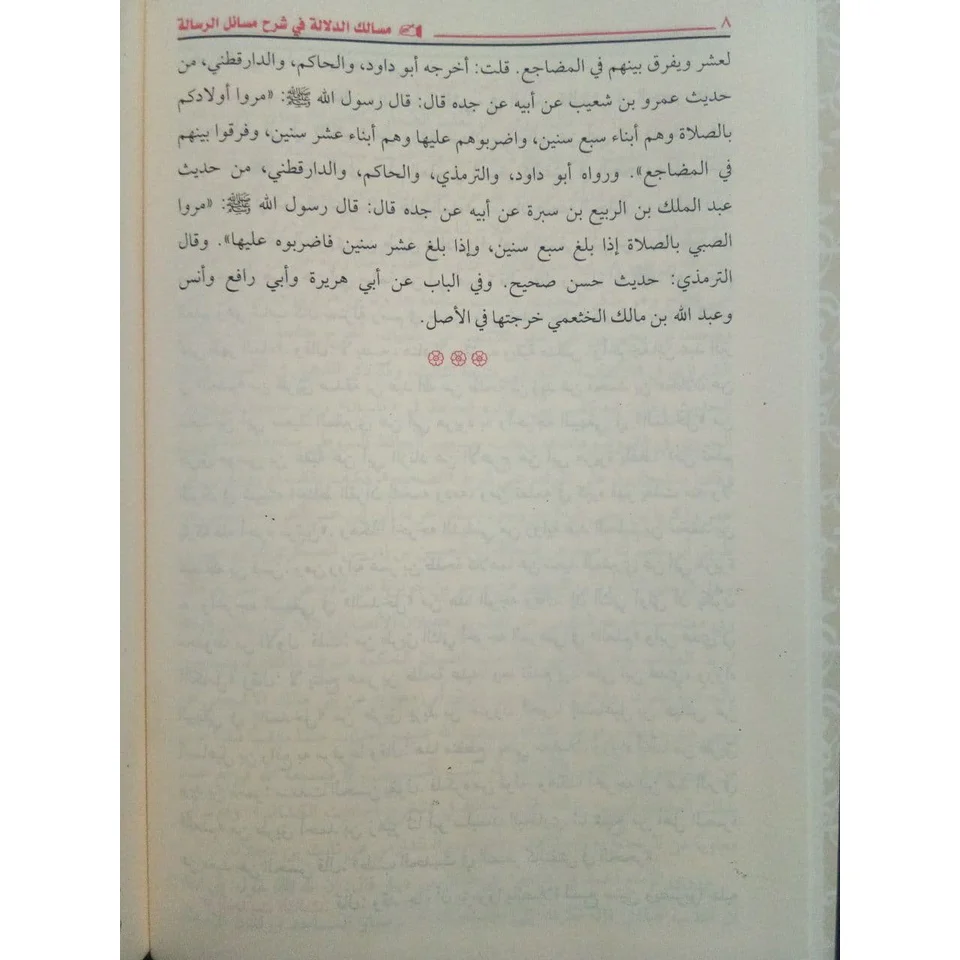 مسالك الدلالة في شرح مسائل الرسالة ٨
لعشر ويفرق بينهم في المضاجع. قلت: أخرجه أبو داود، والحاكم، والدارقطني، من
حديث عمرو بن شعيب عن أبيه عن جده قال: قال رسول الله ﷺ: «مروا أولادكم
بالصلاة وهم أبناء سبع سنين، واضربوهم عليها وهم أبناء عشر سنين، وفرقوا بينهم
في المضاجع». ورواه أبو داود، والترمذي، والحاكم، والدارقطني، من حديث
عبد الملك بن الربيع بن سبرة عن أبيه عن جده قال: قال رسول الله ﷺ: «مروا
الصبي بالصلاة إذا بلغ سبع سنين، وإذا بلغ عشر سنين فاضربوه عليها». وقال
الترمذي: حديث حسن صحيح. وفي الباب عن أبي هريرة وأبي رافع وأنس
وعبد الله بن مالك الخثعمي خرجتها في الأصل.